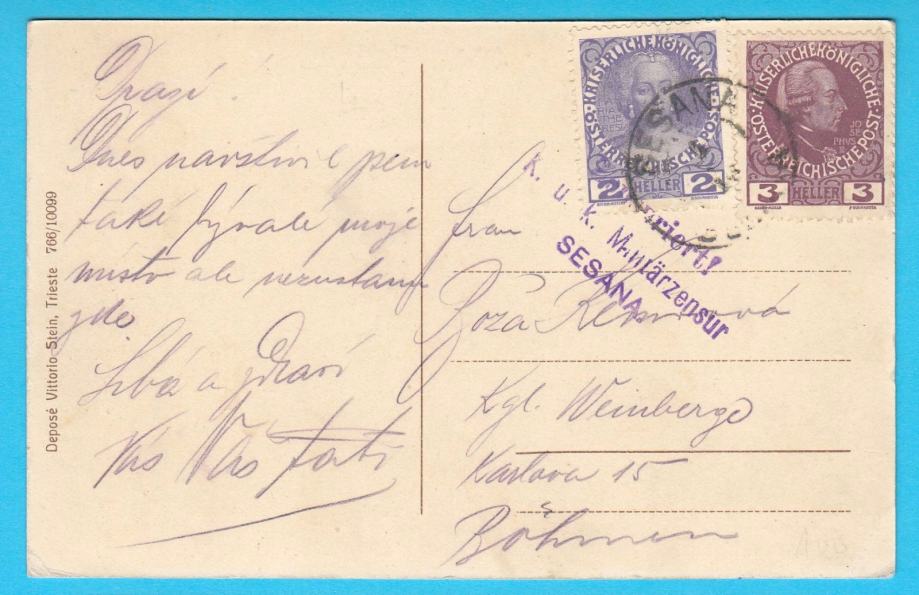 Drazí!
Dnes navštívil jsem
také bývalé moje
místo ale nezustanu
zde
Líbá a zdraví
Vás Váš tati
Deposé Vittorio Stein, Trieste 766/10099
KAISERLICHE KÖNIGLICHE
ÖSTERREICHISCHE POST
2 HELLER 2
KAISERLICHE KÖNIGLICHE
ÖSTERREICHISCHE POST
JOSEPHVS
3 HELLER 3
SESANA
K. u. k. Militärzensur
SESANA
Frau
Boža
Kgl. Weinberge
Karlova 15
Böhmen